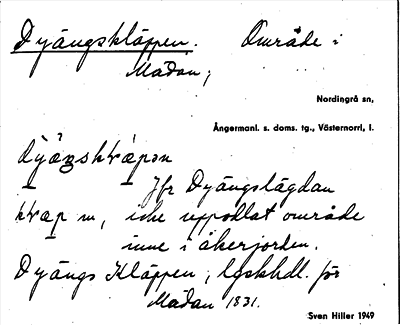 Dyängskläppen. Område i
Mädan;
Nordingrå sn,
Ångermanl. s. doms. tg., Västernorrl. l.
Jfr Dyängslägdan
m, icke uppodlat område
inne i åkerjorden.
Dyängs Kläppen, lgskhdl. för
Mädan 1831.
Sven Hiller 1949